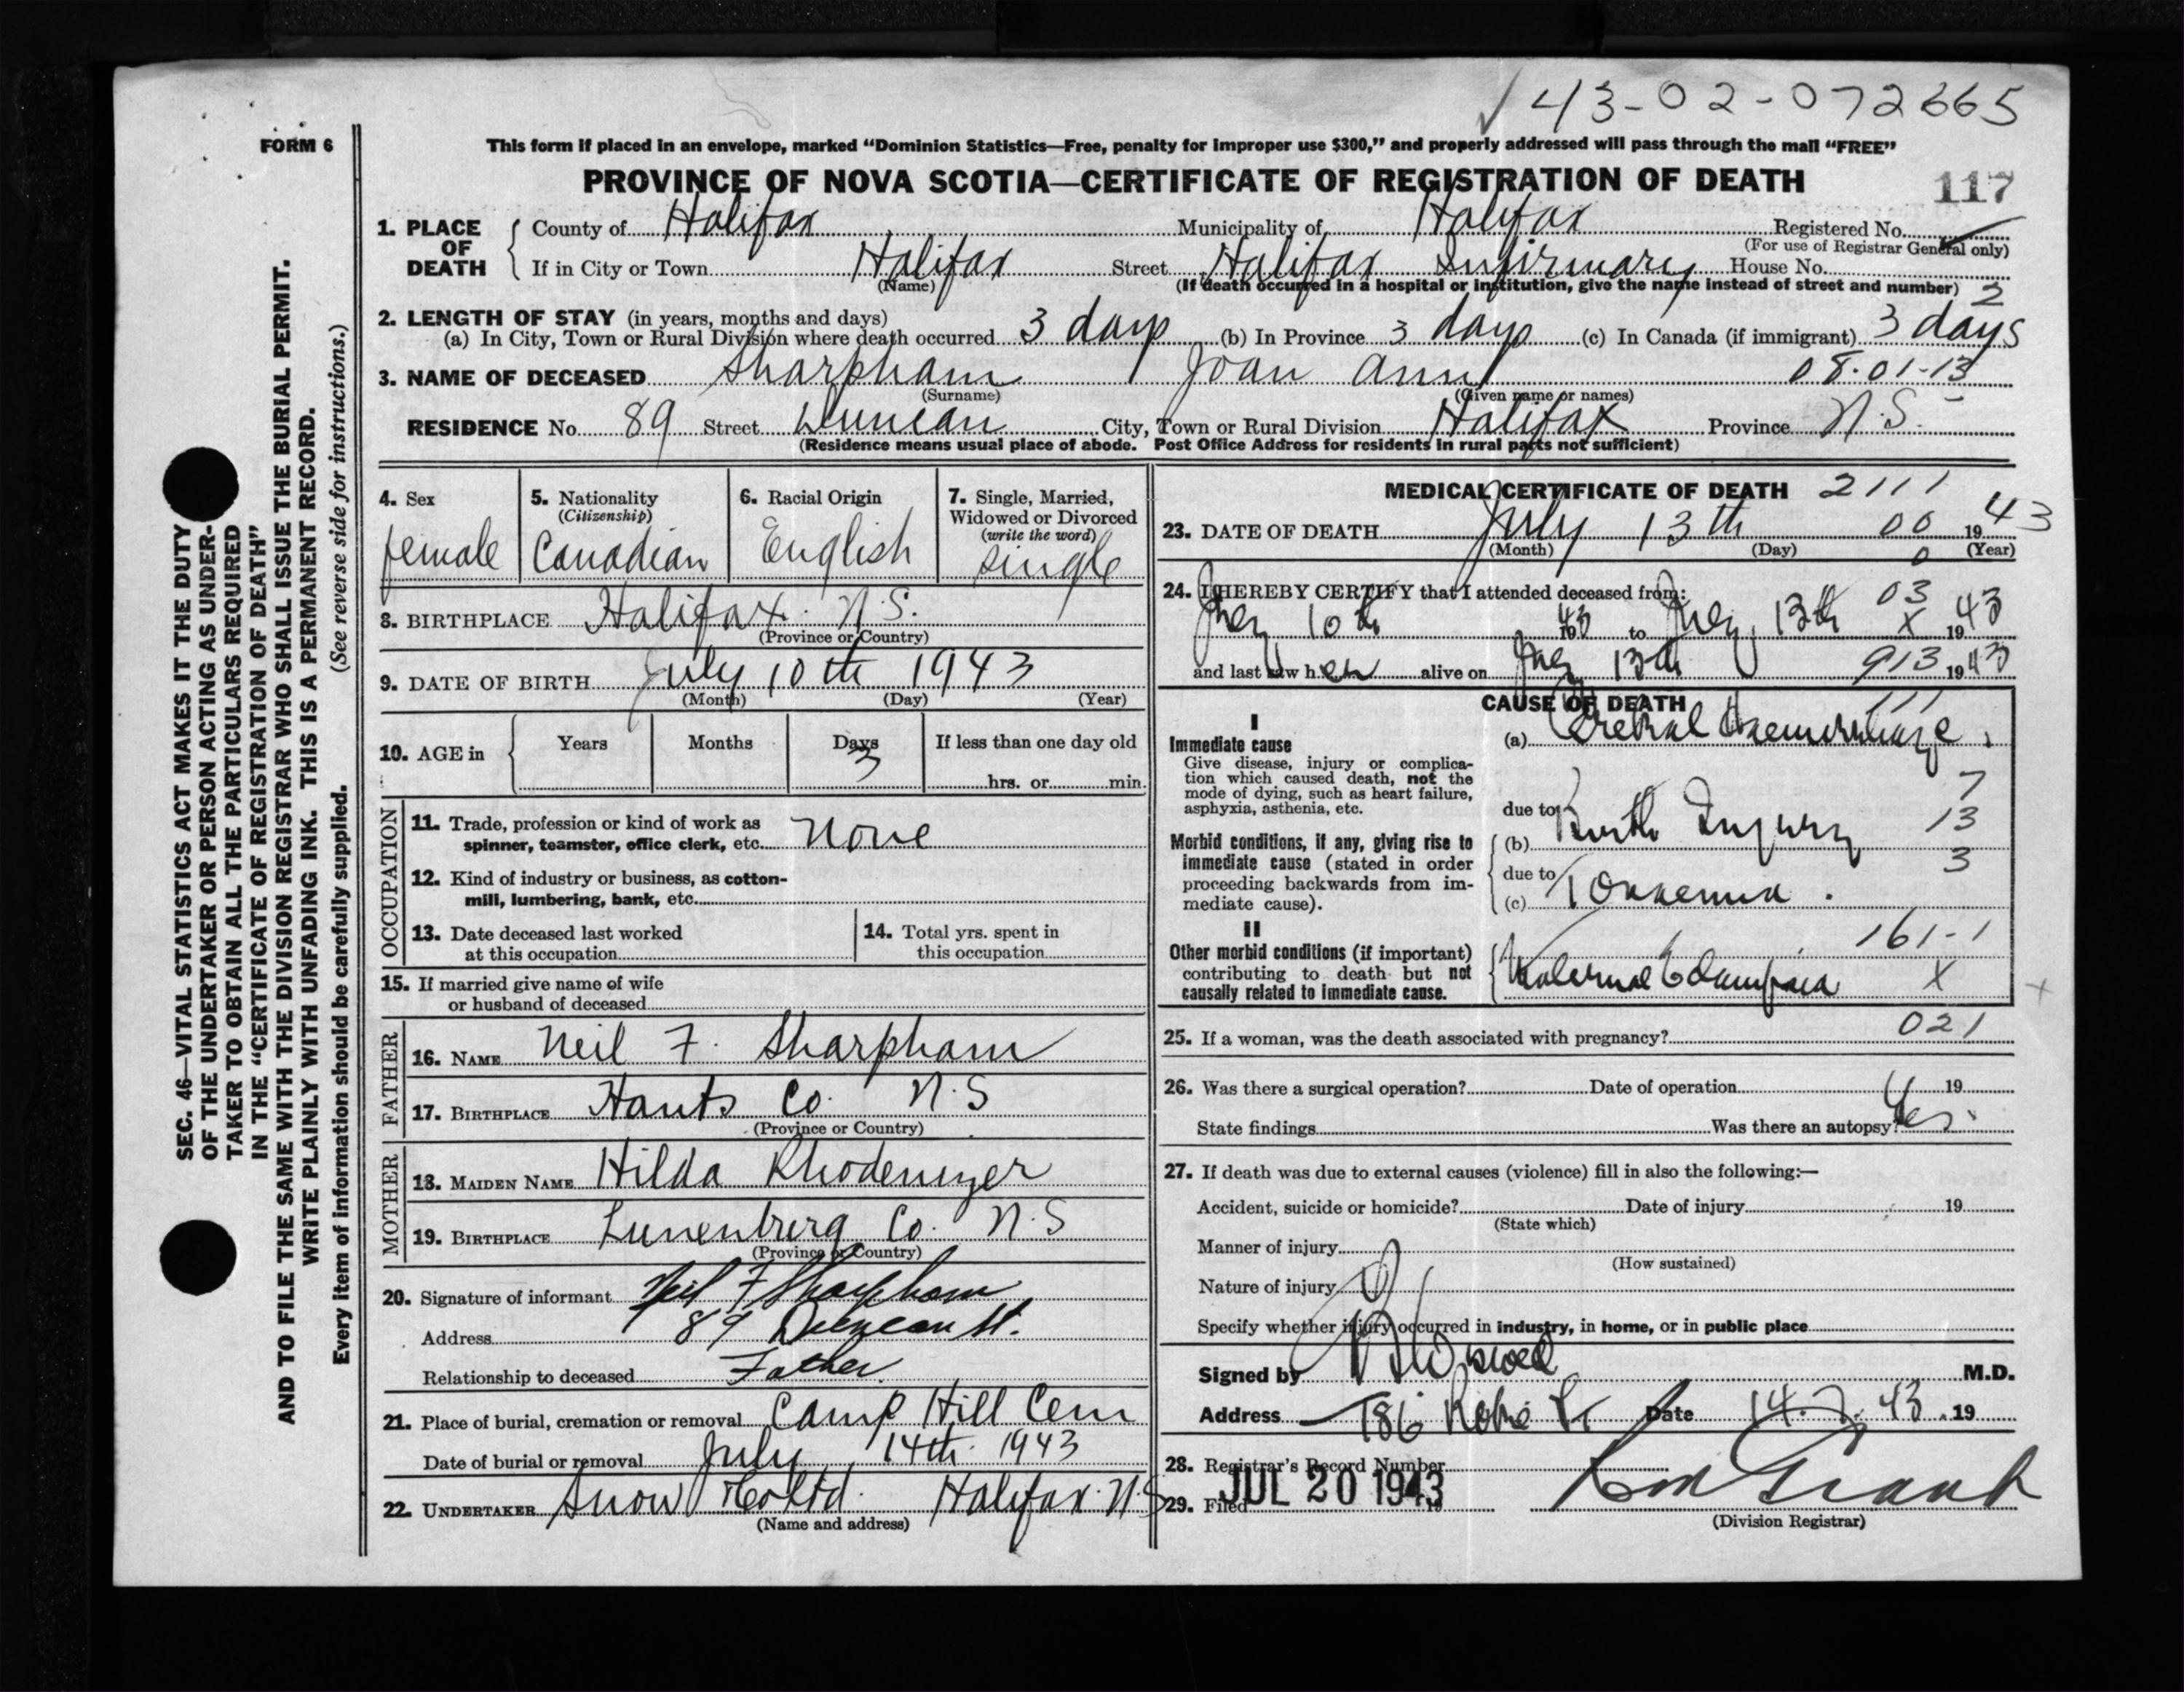 43-02-072665
FORM 6
This form if placed in an envelope, marked "Dominion Statistics—Free, penalty for improper use $300," and properly addressed will pass through the mail "FREE"
PROVINCE OF NOVA SCOTIA—CERTIFICATE OF REGISTRATION OF DEATH 117
1. PLACE OF DEATH { County of Halifax Municipality of Halifax Registered No.
(For use of Registrar General only)
If in City or Town Halifax Street Halifax Infirmary House No.
(Name) (If death occurred in a hospital or institution, give the name instead of street and number) 2
2. LENGTH OF STAY (in years, months and days)
(a) In City, Town or Rural Division where death occurred 3 days (b) In Province 3 days (c) In Canada (if immigrant) 3 days
3. NAME OF DECEASED Sharpham Joan Ann 08-01-13
(Surname) (Given name or names)
RESIDENCE No. 89 Street Duncan City, Town or Rural Division Halifax Province N.S.
(Residence means usual place of abode. Post Office Address for residents in rural parts not sufficient)
4. Sex female
5. Nationality (Citizenship) Canadian
6. Racial Origin English
7. Single, Married, Widowed or Divorced (write the word) single
8. BIRTHPLACE Halifax N.S.
(Province or Country)
9. DATE OF BIRTH July 10th 1943
(Month) (Day) (Year)
10. AGE in { Years Months Days 3 If less than one day old
hrs. or min.
OCCUPATION
11. Trade, profession or kind of work as
spinner, teamster, office clerk, etc. None
12. Kind of industry or business, as cotton-
mill, lumbering, bank, etc.
13. Date deceased last worked
at this occupation
14. Total yrs. spent in
this occupation
15. If married give name of wife
or husband of deceased
FATHER
16. NAME Neil F. Sharpham
17. BIRTHPLACE Hants Co. N.S
(Province or Country)
MOTHER
18. MAIDEN NAME Hilda Rhodenizer
19. BIRTHPLACE Lunenburg Co. N.S
(Province or Country)
20. Signature of informant Neil F Sharpham
Address 89 Duncan St.
Relationship to deceased Father
21. Place of burial, cremation or removal Camp Hill Cem
Date of burial or removal July 14th 1943
22. UNDERTAKER Snow & Co Ltd. Halifax N.S
(Name and address)
MEDICAL CERTIFICATE OF DEATH 2111
23. DATE OF DEATH July 13th 00 1943
(Month) (Day) 0 (Year)
24. I HEREBY CERTIFY that I attended deceased from: 03
July 10th 43 to July 13th X 1943
and last saw her alive on July 13th 913 1943
CAUSE OF DEATH 111
I
Immediate cause
Give disease, injury or complica-
tion which caused death, not the
mode of dying, such as heart failure,
asphyxia, asthenia, etc.
(a) Cerebral Haemorrhage
7
due to
13
Morbid conditions, if any, giving rise to
immediate cause (stated in order
proceeding backwards from im-
mediate cause).
(b) Birth Injury
3
due to
(c) Toxaemia.
II
161-1
Other morbid conditions (if important)
contributing to death but not
causally related to immediate cause.
Maternal Eclampsia X
25. If a woman, was the death associated with pregnancy? 021
26. Was there a surgical operation? Date of operation 19
State findings Was there an autopsy? Yes
27. If death was due to external causes (violence) fill in also the following:—
Accident, suicide or homicide? Date of injury 19
(State which)
Manner of injury
(How sustained)
Nature of injury
Specify whether injury occurred in industry, in home, or in public place
Signed by M.D.
Address 186 Date 14.7.43 19
28. Registrar's Record Number
29. Filed JUL 20 1943 19
(Division Registrar)
SEC. 46—VITAL STATISTICS ACT MAKES IT THE DUTY
OF THE UNDERTAKER OR PERSON ACTING AS UNDER-
TAKER TO OBTAIN ALL THE PARTICULARS REQUIRED
IN THE "CERTIFICATE OF REGISTRATION OF DEATH"
AND TO FILE THE SAME WITH THE DIVISION REGISTRAR WHO SHALL ISSUE THE BURIAL PERMIT.
WRITE PLAINLY WITH UNFADING INK. THIS IS A PERMANENT RECORD.
Every item of information should be carefully supplied. (See reverse side for instructions.)